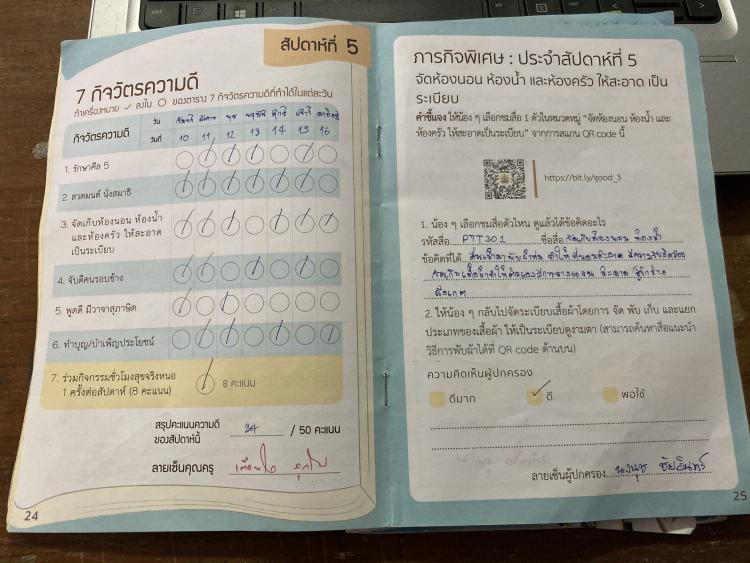 สัปดาห์ที่ 5
7 กิจวัตรความดี
ทำเครื่องหมาย ✓ ลงใน ○ ของตาราง 7 กิจวัตรความดีที่ทำได้ในแต่ละวัน
กิจวัตรความดี
วัน จันทร์ อังคาร พุธ พฤหัส ศุกร์ เสาร์ อาทิตย์
วันที่ 10 11 12 13 14 15 16
1. รักษาศีล 5
2. สวดมนต์ นั่งสมาธิ
3. จัดเก็บห้องนอน ห้องน้ำ
และห้องครัว ให้สะอาด
เป็นระเบียบ
4. จับดีคนรอบข้าง
5. พูดดี มีวาจาสุภาษิต
6. ทำบุญ/บำเพ็ญประโยชน์
7. ร่วมกิจกรรมชั่วโมงสุขจริงหนอ
1 ครั้งต่อสัปดาห์ (8 คะแนน)
8 คะแนน
สรุปคะแนนความดี
ของสัปดาห์นี้ 34 / 50 คะแนน
ลายเซ็นคุณครู
24
ภารกิจพิเศษ : ประจำสัปดาห์ที่ 5
จัดห้องนอน ห้องน้ำ และห้องครัว ให้สะอาด เป็น
ระเบียบ
คำชี้แจง ให้น้อง ๆ เลือกชมสื่อ 1 ตัวในหมวดหมู่ "จัดห้องนอน ห้องน้ำ และ
ห้องครัว ให้สะอาดเป็นระเบียบ" จากการสแกน QR code นี้
https://bit.ly/good_3
1. น้อง ๆ เลือกชมสื่อตัวไหน ดูแล้วได้ข้อคิดอะไร
รหัสสื่อ PTT301 ชื่อสื่อ จัดเก็บห้องนอน ห้องน้ำ
ข้อคิดที่ได้
2. ให้น้อง ๆ กลับไปจัดระเบียบเสื้อผ้าโดยการ จัด พับ เก็บ และแยก
ประเภทของเสื้อผ้า ให้เป็นระเบียบดูงามตา (สามารถค้นหาสื่อแนะนำ
วิธีการพับผ้าได้ที่ QR code ด้านบน)
ความคิดเห็นผู้ปกครอง
ดีมาก ✓ ดี พอใช้
ลายเซ็นผู้ปกครอง นงนุช ชัยอินทร์
25